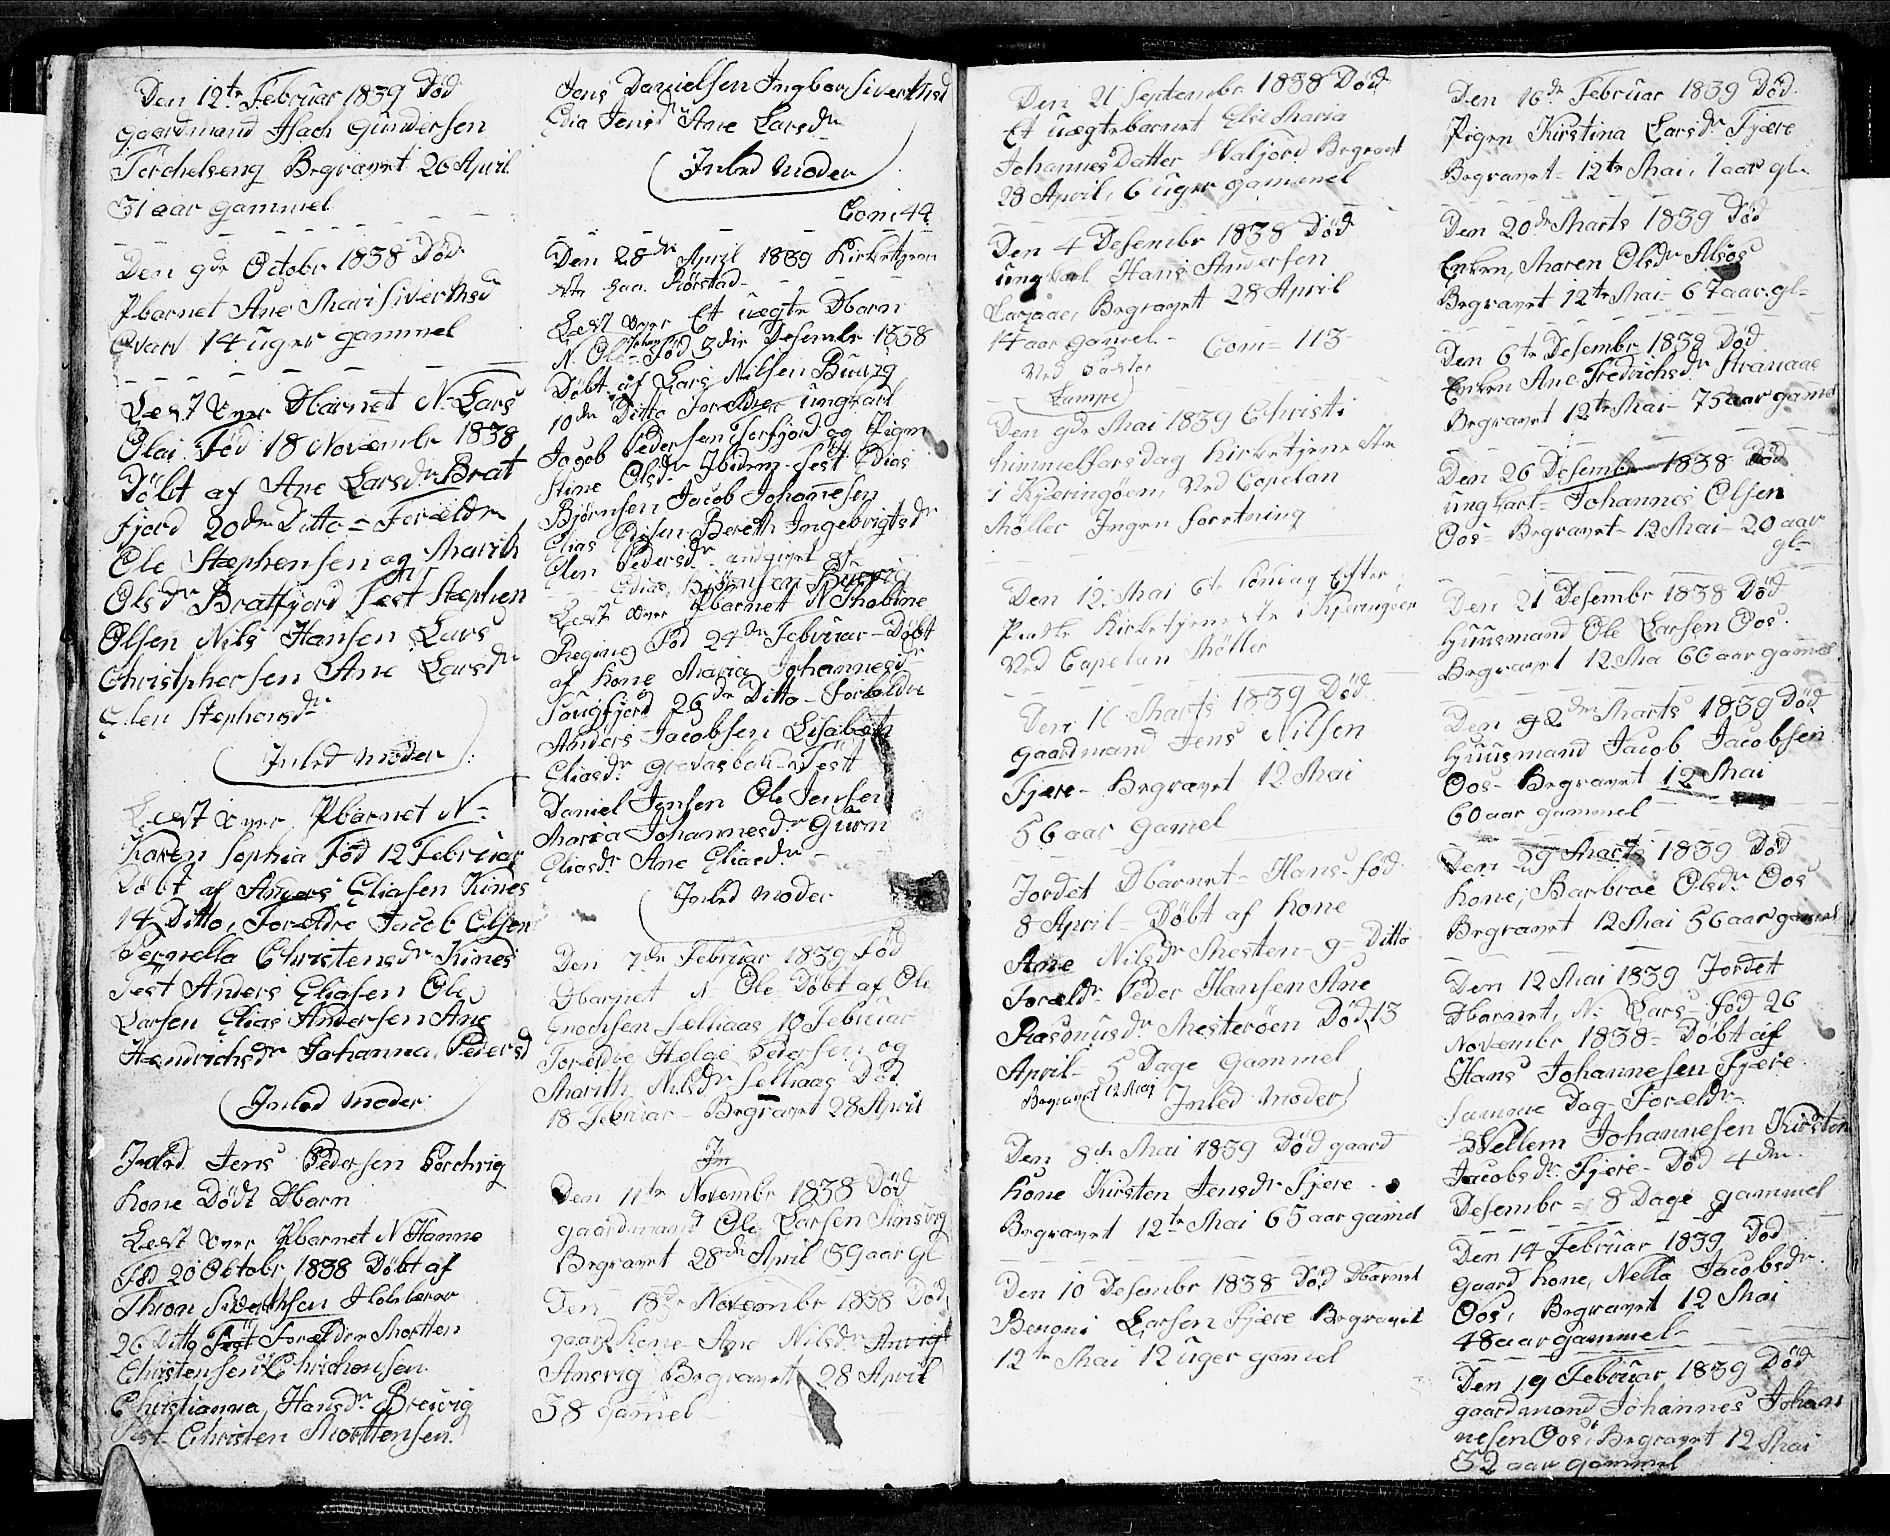 Den 12te Februar 1839 Död
gaardmand Isach Gundersen
Torchelseng Begravet 26 April
31 aar gammel
Den 9de Octobr 1838 Död
Pbarnet Ane Mari Siverthsd
14 uger gammel
Læst over Dbarnet N. Lars
Olai Föd 18 Novembr 1838
Döbt af Ane Larsdr Brat
fjord 20de Ditto = Forældre
Ole Stephensen og Marith
Olsdr Bratfjord Fest Stephen
Olsen Nils Hansen Lars
Christphersen Ane Larsdr
Elen Stephensdr
Inled moder
Læst over Pbarnet N-
Karen Sophia Föd 12 Februar
Döbt af Anders Eliasen Kines
14 Ditto, Forældre Jacob Olsen
Pernella Christensdr Kines
Fest Anders Eliasen Ole
Larsen Elias Andersen Ane
Hendrichsdr Johanna Pedersd
Inled moder
Inled Jens Pedersen
Kone Dödt Dbarn
Læst over Pbarnet N Hanna
Föd 20 Oktobr 1838 Döbt af
26 Ditto Fest Forældre Mortten
Christensen
Christianna Hansdr Brevig
Fest Christen Morttensen
Jens Danielsen Ingbor Siverthsd
Edia Jensd Ane Larsdr
Inled moder
Com 49
Den 28de April 1839 Kirketjene
ste paa Rörstad
Læst over Et uægte Dbarn
N. Ole Johan Föd 3die Desembr 1838
Döbt af Lars Nilsen Buvig
10de Ditto Forældre ungkarl
Jacob Pedersen Torfjord og Pigen
Stine Olsdr Ibidem. Fest Edias
Björnsen Jacob Johannesen
Elias Berith Ingebrigtsdr
Elen Pedersdr angivet
Læst over Pbarnet N
Regina Föd 24de Februar - Döbt
af Kone Maria Johannesdr
26de Ditto - Forældre
Anders Jacobsen Lisabeth
Eliasdr Fest
Daniel Jensen Ole Jensen
Maria Johannesdr Gurn
Eliasdr Ane Eliasdr
Inled moder
Den 7de Februar 1839 Föd
Dbarnet N Ole Döbt af Ole
Enochsen Sælliaas 10 Februar
Forældre Helge Pedersen og
Marith Nilsdr Selliaas Död
18 Februar - Begravet 28 April
In
Den 11te Novembr 1838 Död
gaardmand Ole Larsen Ansvig
Begravet 28de April 39 aar gl
Den 18de Novembr 1838 Död
gaard Kone Ane Nilsdr Anvig
Ansvig Begravet 28 April
38 gamel
Den 21 Septembr 1838 Död
Et uægtebarnet Elsi Maria
Johannes Datter Valjord Begravet
28 April, 6 uger gammel
Den 4 Desembr 1838 Död
ungkarl Hans Andersen
Begravet 28 April
14 aar gamel - Com = 113
Ved Pastor
Lampe
Den 9de Mai 1839 Christi
himmelfarsdag Kirketjeneste
i Kjeringöen, Ved Capelan
Möller Ingen forretning
Den 12 Mai 6te Söndag Efter
Paaske Kirketjeneste i Kjeringöen
Ved Capelan Möller
Den 16 Marts 1839 Död
gaardmand Jens Nilsen
Fjære - Begravet 12 Mai
56 aar gamel
Jordet Dbarnet - Hans - föd
8 April - Döbt af Kone
Ane Nilsdr Mesten - 9 - Ditto
Forældr Peder Hansen Ane
Rasmusdr Mesteröen Död 13
April - 5 Dage gammel
Begravet 12 Mai
Inled moder
Den 8de Mai 1839 Död gaard
Kone Kirsten Jensdr Fjere
Begravet 12te Mai 65 aar gamel
Den 10 Desembr 1838 Död Dbarnet
Benoni Larsen Fjære Begravet
12te Mai 12 uger gamel
Den 16de Februar 1839 Död
Pigen Kirstina Larsdr Fjære
Begravet 12te Mai, 1 aar gl.
Den 20de Marts 1839 Död
Enken, Maren Olsdr Alsos
Begravet 12te Mai - 67 aar gl-
Den 6te Desembr 1838 Död
Enken Ane Fredrichsdr Strancaae
Begravet 12te Mai - 75 aar gamel
Den 26 Desembr 1838 Död
ungkarl - Johannes Olsen
Oos - Begravet - 12 Mai - 20 aar
gl-
Den 21 Desembr 1838 Död
Huusmand Ole Larsen Oos.
Begravet 12 Mai 66 aar gammel
Marts 1839 Död
Huusmand Jacob Jacobsen
Oos - Begravet 12 Mai
60 aar gammel
Den 29 Marts 1839 Död
Kone, Barbroe Olsdr Oos
Begravet 12 Mai 56 aar gamel
Den 12 Mai 1839 Jordet
Dbarnet, N: Lars - föd 26
Novembr 1838 - Döbt af
Hans Johannesen Fjære
samme Dag - Forældr-
Vellem Johannesen Kirsten
Jacobsdr Fjere - Död 4de
Desembr = 8 Dage gammel
Den 14 Februar 1839 Död
gaard Kone, Nella Jacobsdr
Oos, Begravet 12 Mai
48 aar gammel-
Den 19 Februar 1839 Död
gaardmand Johannes Johan
nesen Oos, Begravet 12 Mai
32 aar gammel